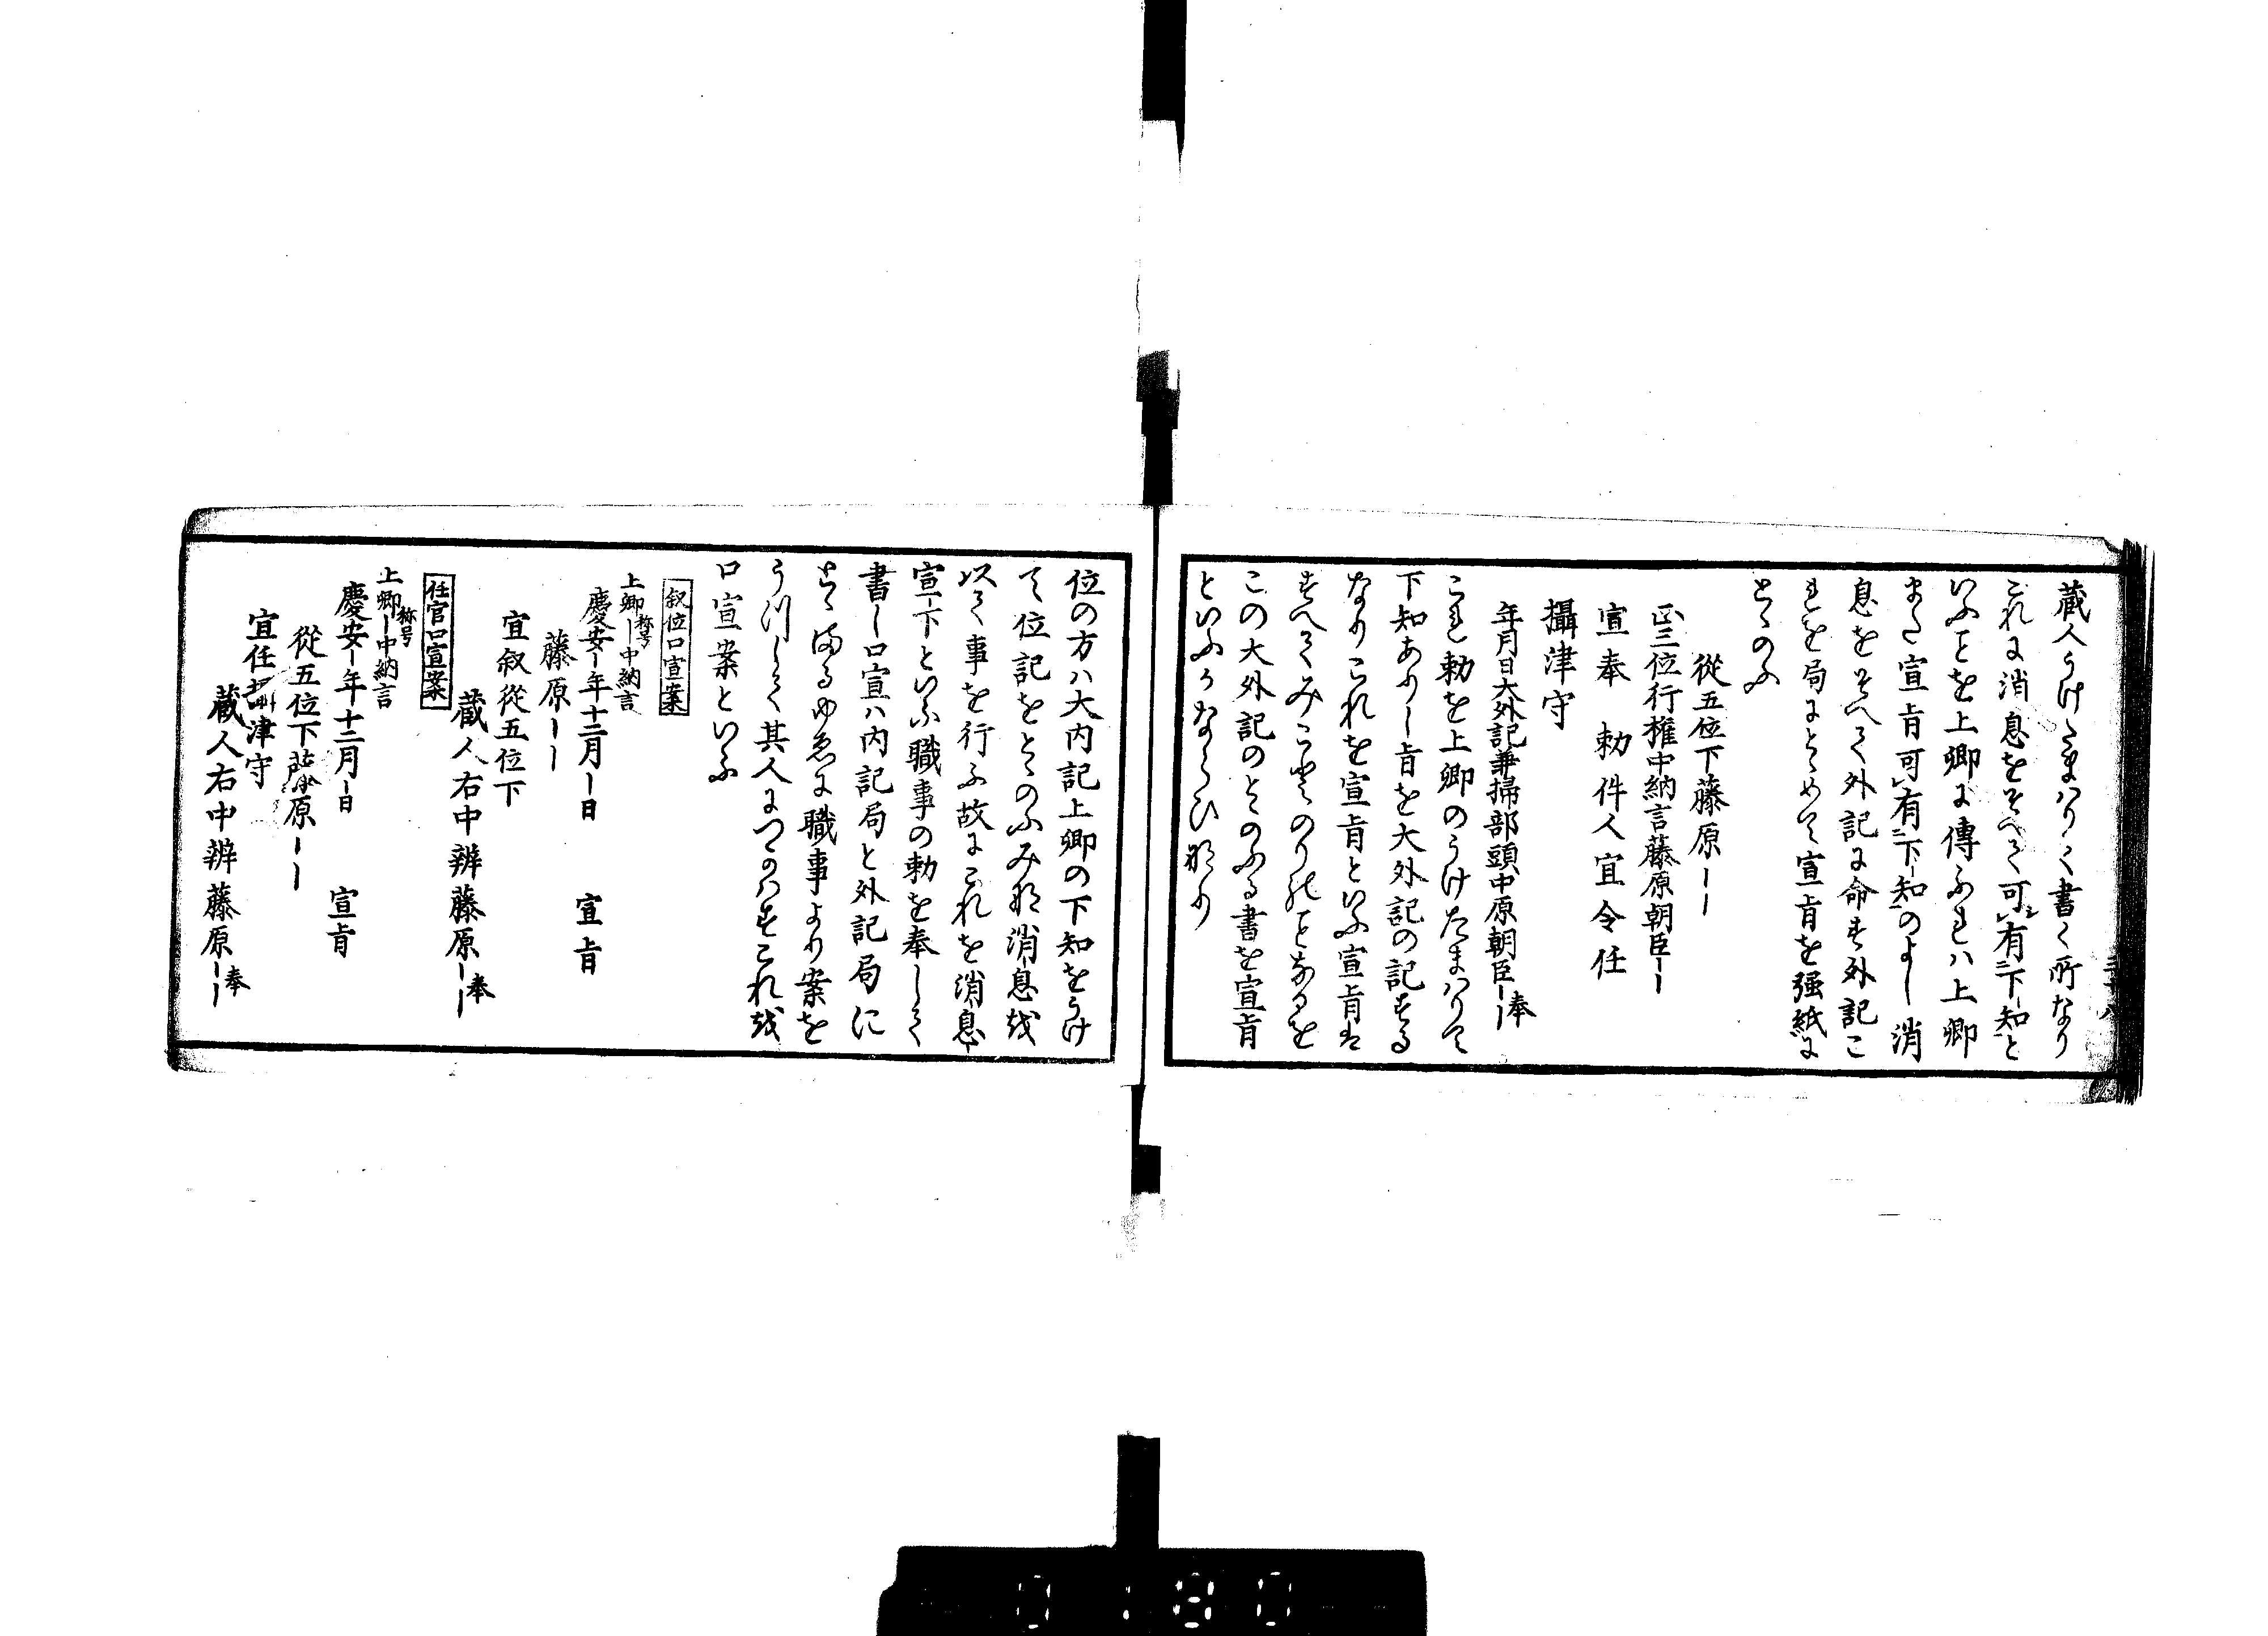 蔵人うけたまハりて書く所なり
これに消息をそへて可レ有二下知一と
いふことを上卿に傳ふれハ上卿
また宣旨可レ有二下知一のよし消
息をそへて外記に命す外記こ
れを局にとゝめて宣旨を强紙に
とゝのふ
從五位下藤原ーー
正三位行權中納言藤原朝臣ー
宣奉　勅件人宜令任
攝津守
年月日大外記兼掃部頭中原朝臣ー奉
これ勅を上卿のうけたまハりて
下知ありし旨を大外記の記する
なりこれを宣旨といふ宣旨は
すへてみことのりのことなるを
この大外記のとゝのふる書を宣旨
といふかならひなり
位の方ハ大内記上卿の下知をうけ
て位記をとゝのふみな消息を
以て事を行ふ故にこれを消息
宣下といふ職事の勅を奉して
書し口宣ハ内記局と外記局に
とゝまるゆゑに職事より案を
うつして其人につかハすこれを
口宣案といふ
叙位口宣案
上卿称号ー中納言
慶安ー年十二月ー日　宣旨
藤原ーー
宜叙從五位下
蔵人右中辨藤原ーー奉
任官口宣案
上卿称号ー中納言
慶安ー年十二月ー日　宣旨
從五位下藤原ーー
宜任攝津守
蔵人右中辨藤原ーー奉